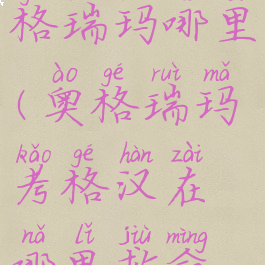 格瑞玛哪里
ào gé ruì mǎ
(奥格瑞玛
kǎo gé hàn zài
考格汉在
nǎ lǐ jiù mìng
哪里救命